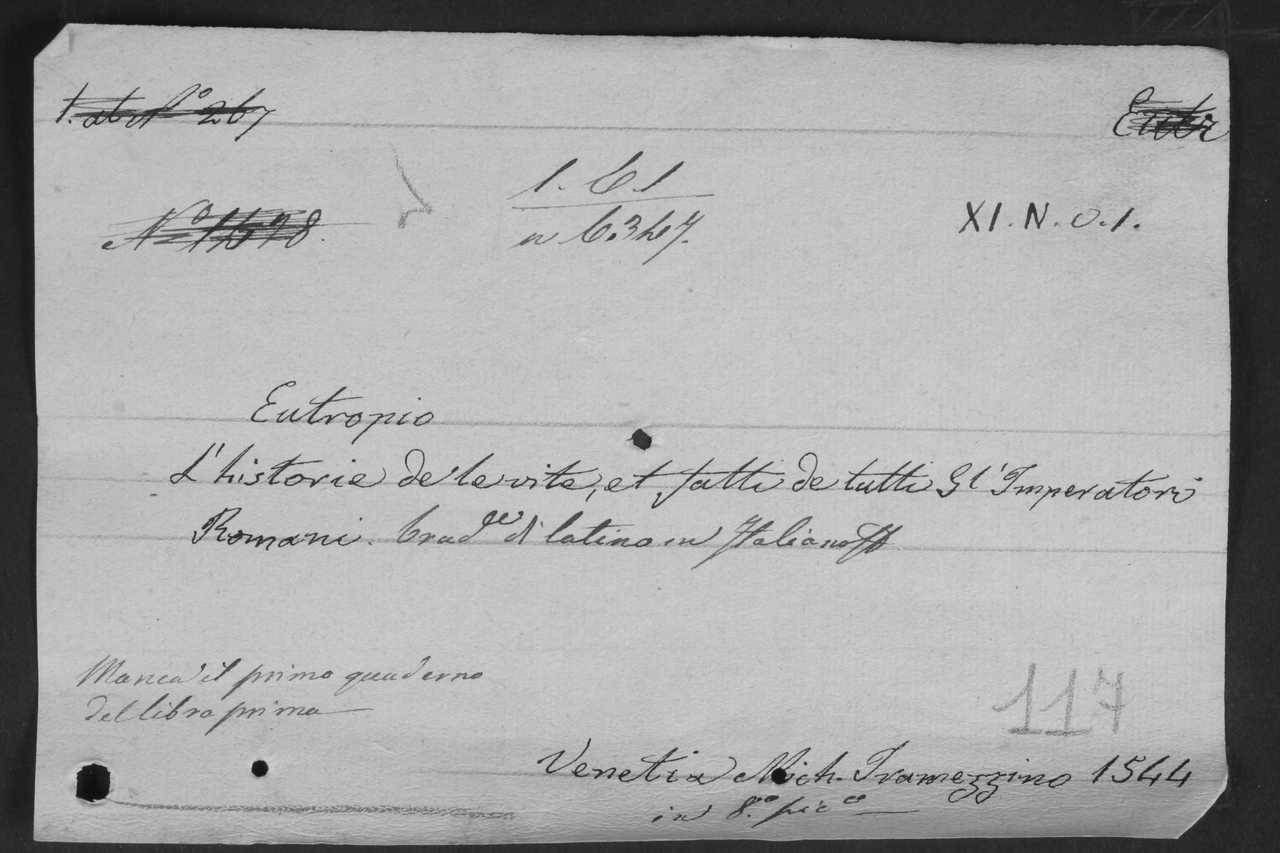 XI. N. 0. 1.
Eutropio
L'historie de le vite, et fatti de tutti Gl' Imperatori
Romani. trad.te di latino in Italiano
Manca il primo quaderno
del libro primo
117
Venetia Mich. Tramezzino 1544
in 8.º pic.º